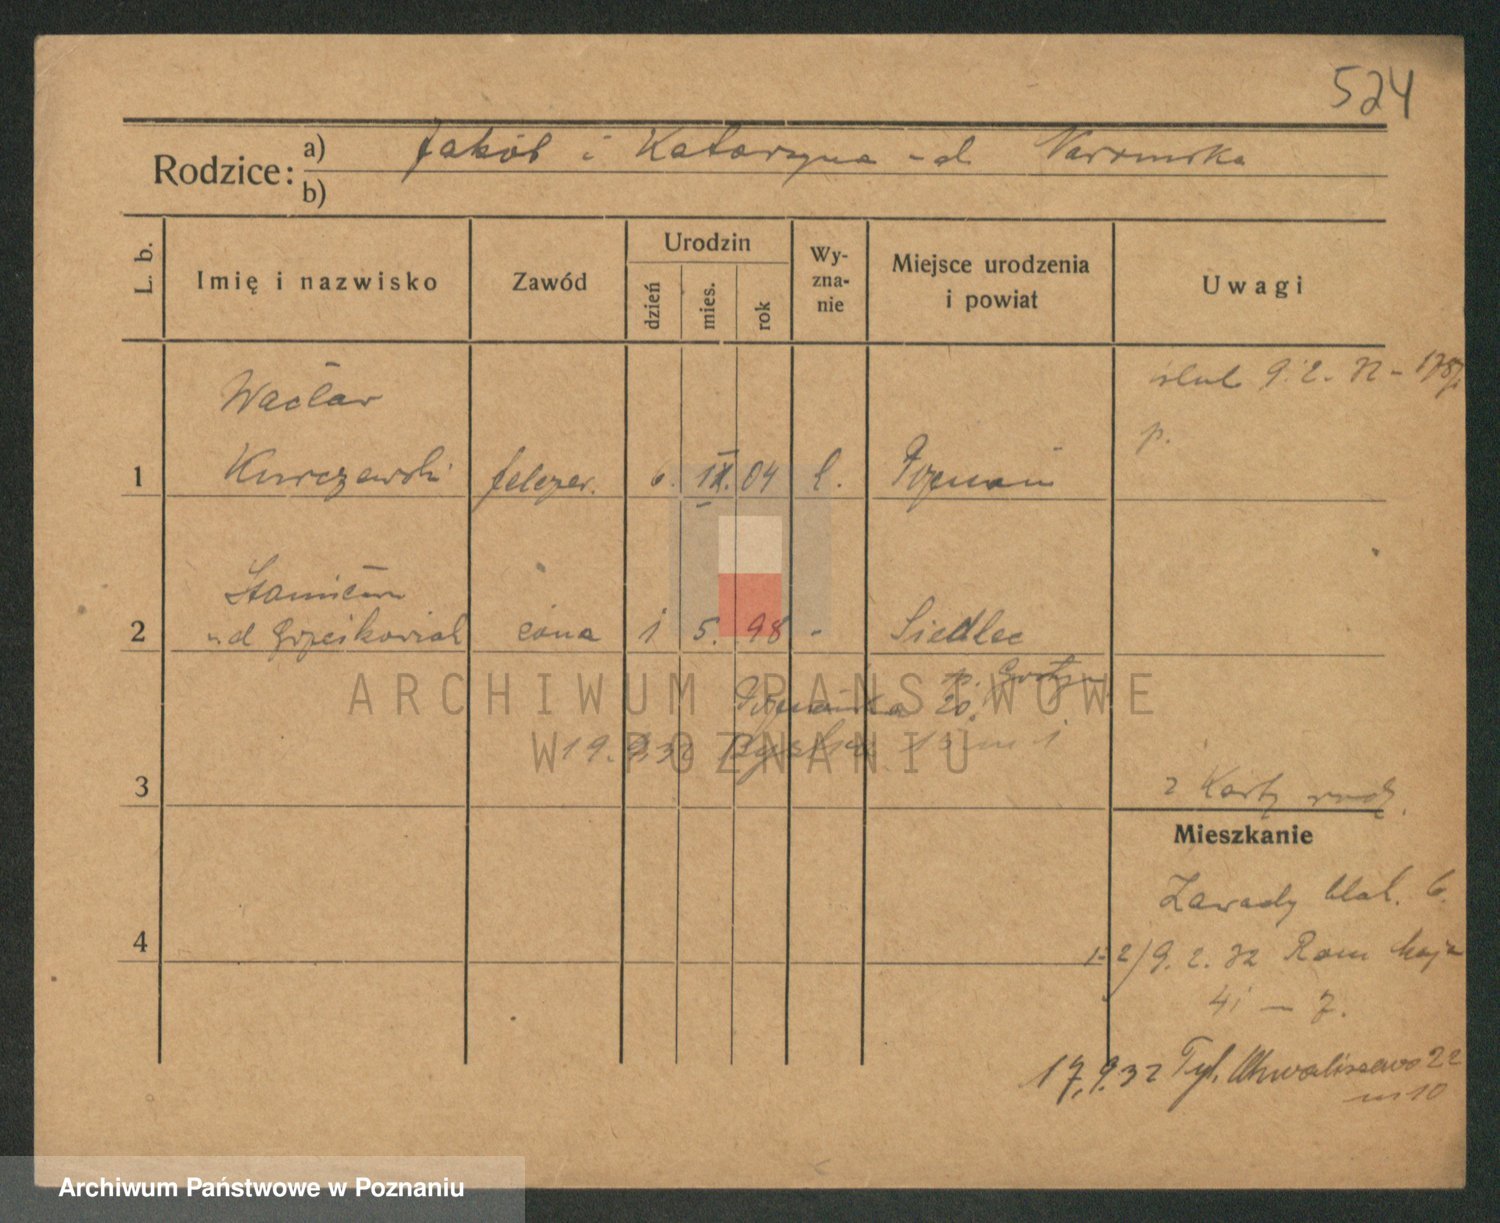 524
Rodzice: a) Jakób i Katarzyna
b)
L. b.
Imię i nazwisko
Zawód
Urodzin
dzień
mies.
rok
Wy-
zna-
nie
Miejsce urodzenia
i powiat
Uwagi
Wacław
ślub 9. 2. 32 -
p.
1 Kurczewski felczer. 6. IX. 04 k. Poznań
Stanisława
2 żona 1 5. 98 - Siedlec
20.
19. 9. 32
3
z Karty
Mieszkanie
Zawady blok. 6.
4
1-2/9. 2. 32 Maja
41 - 7.
17.9.32 Tyl. Chwaliszewo 22
m 10
ARCHIWUM PAŃSTWOWE
W POZNANIU
Archiwum Państwowe w Poznaniu